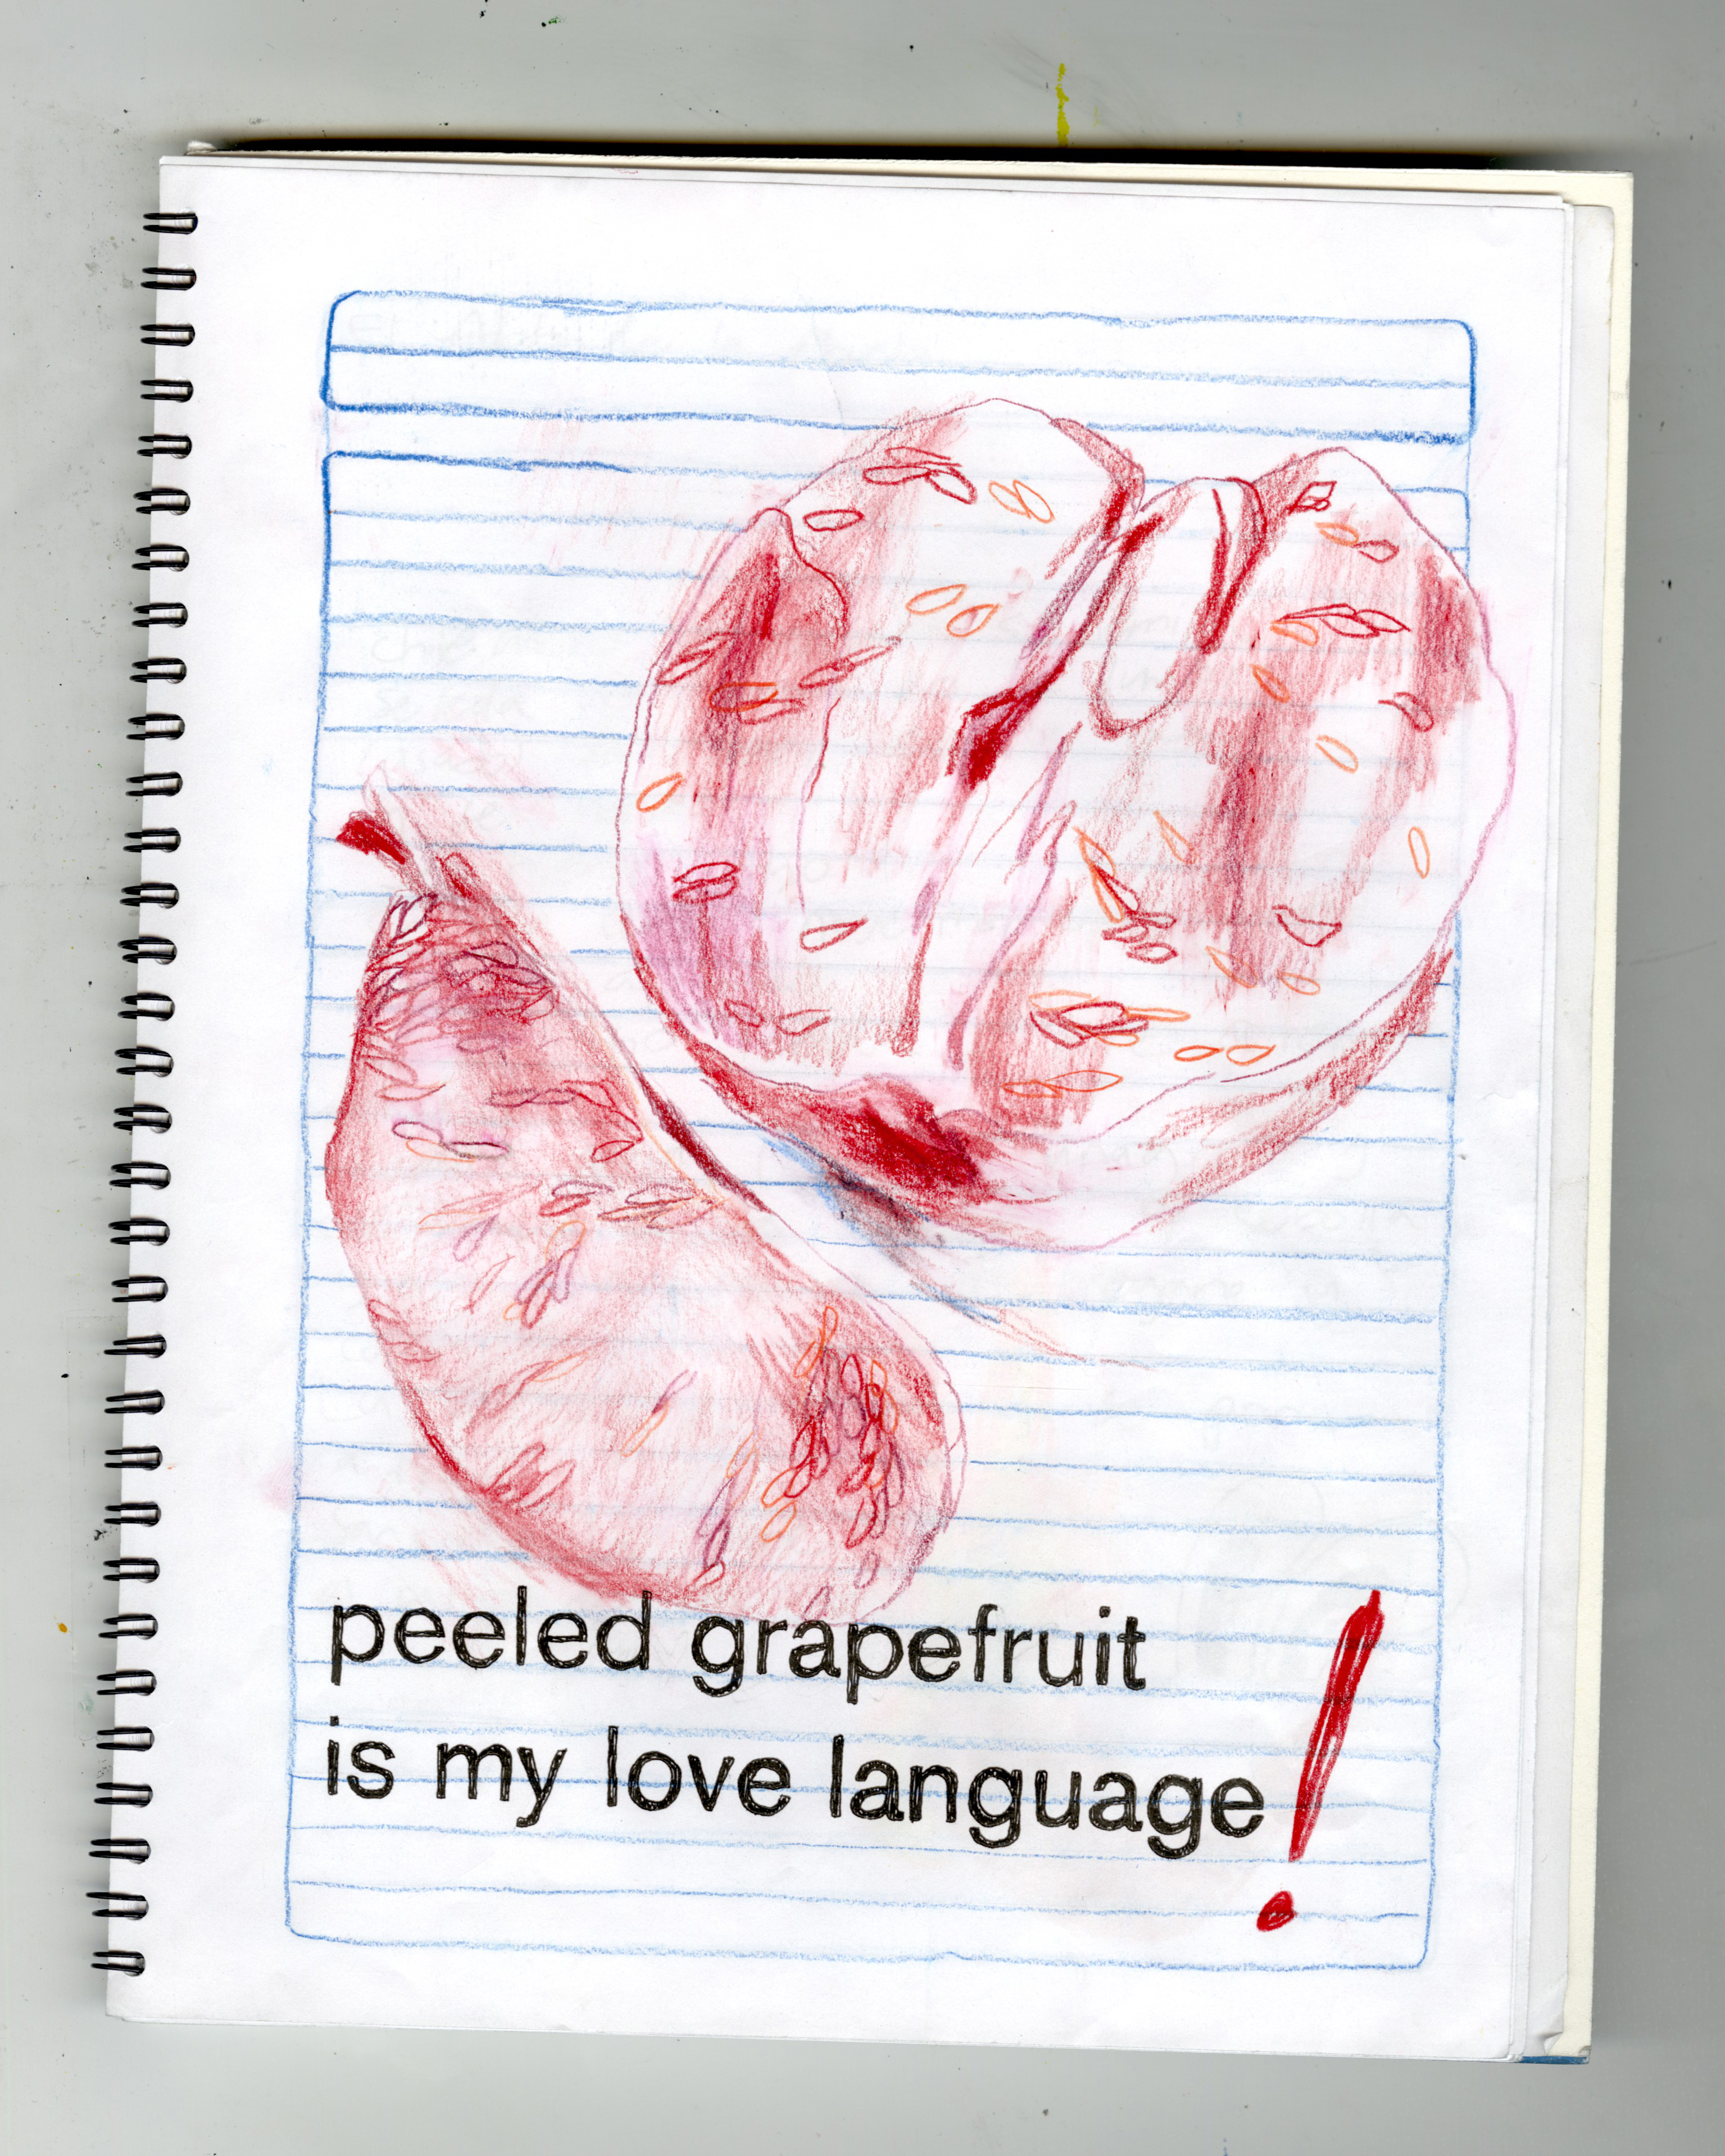 peeled grapefruit
is my love language!